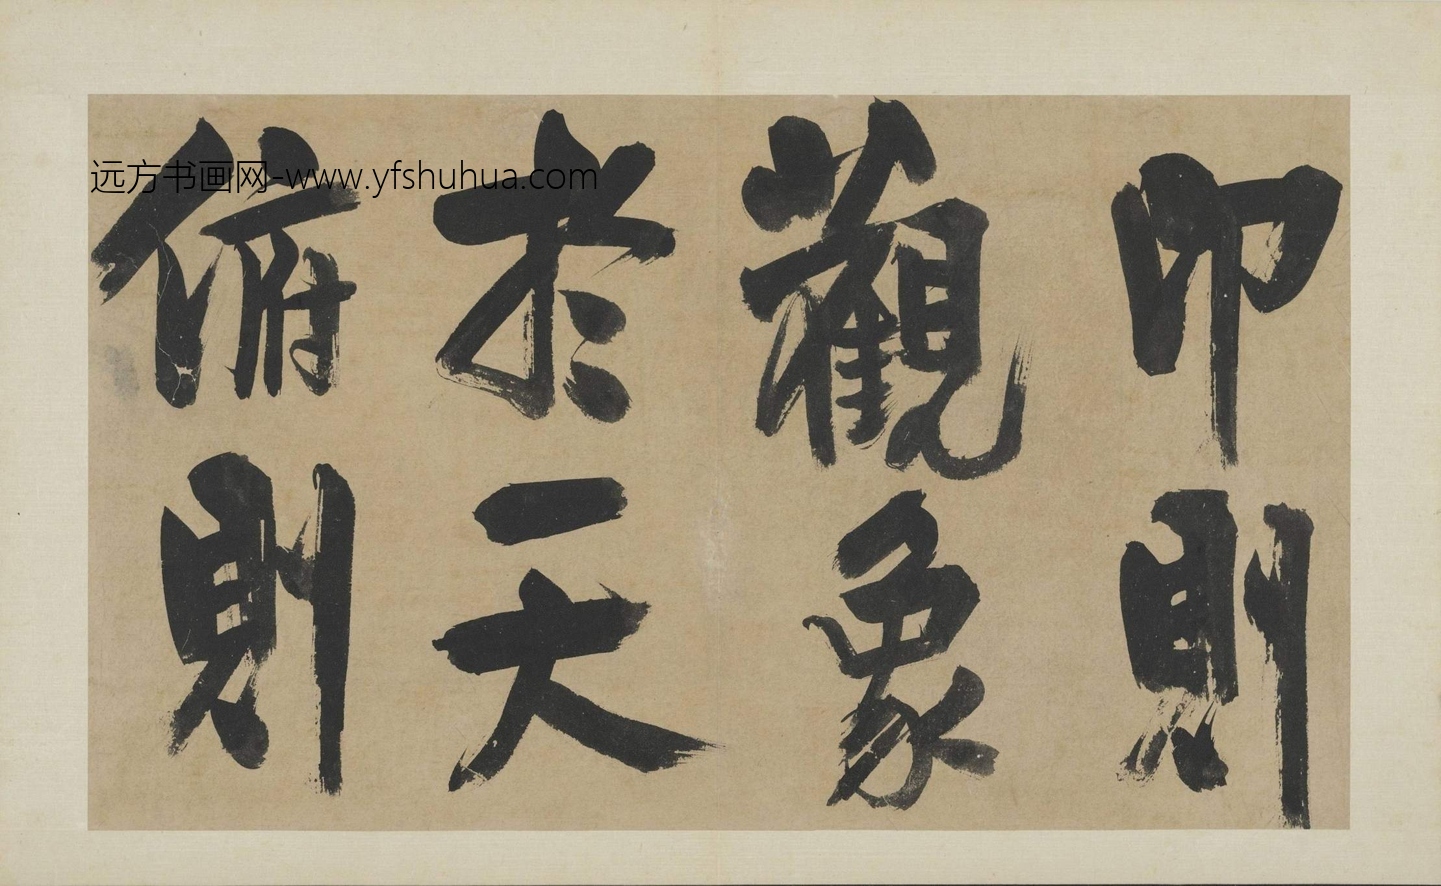 卬則
觀象
於天
俯則
远方书画网-www.yfshuhua.com